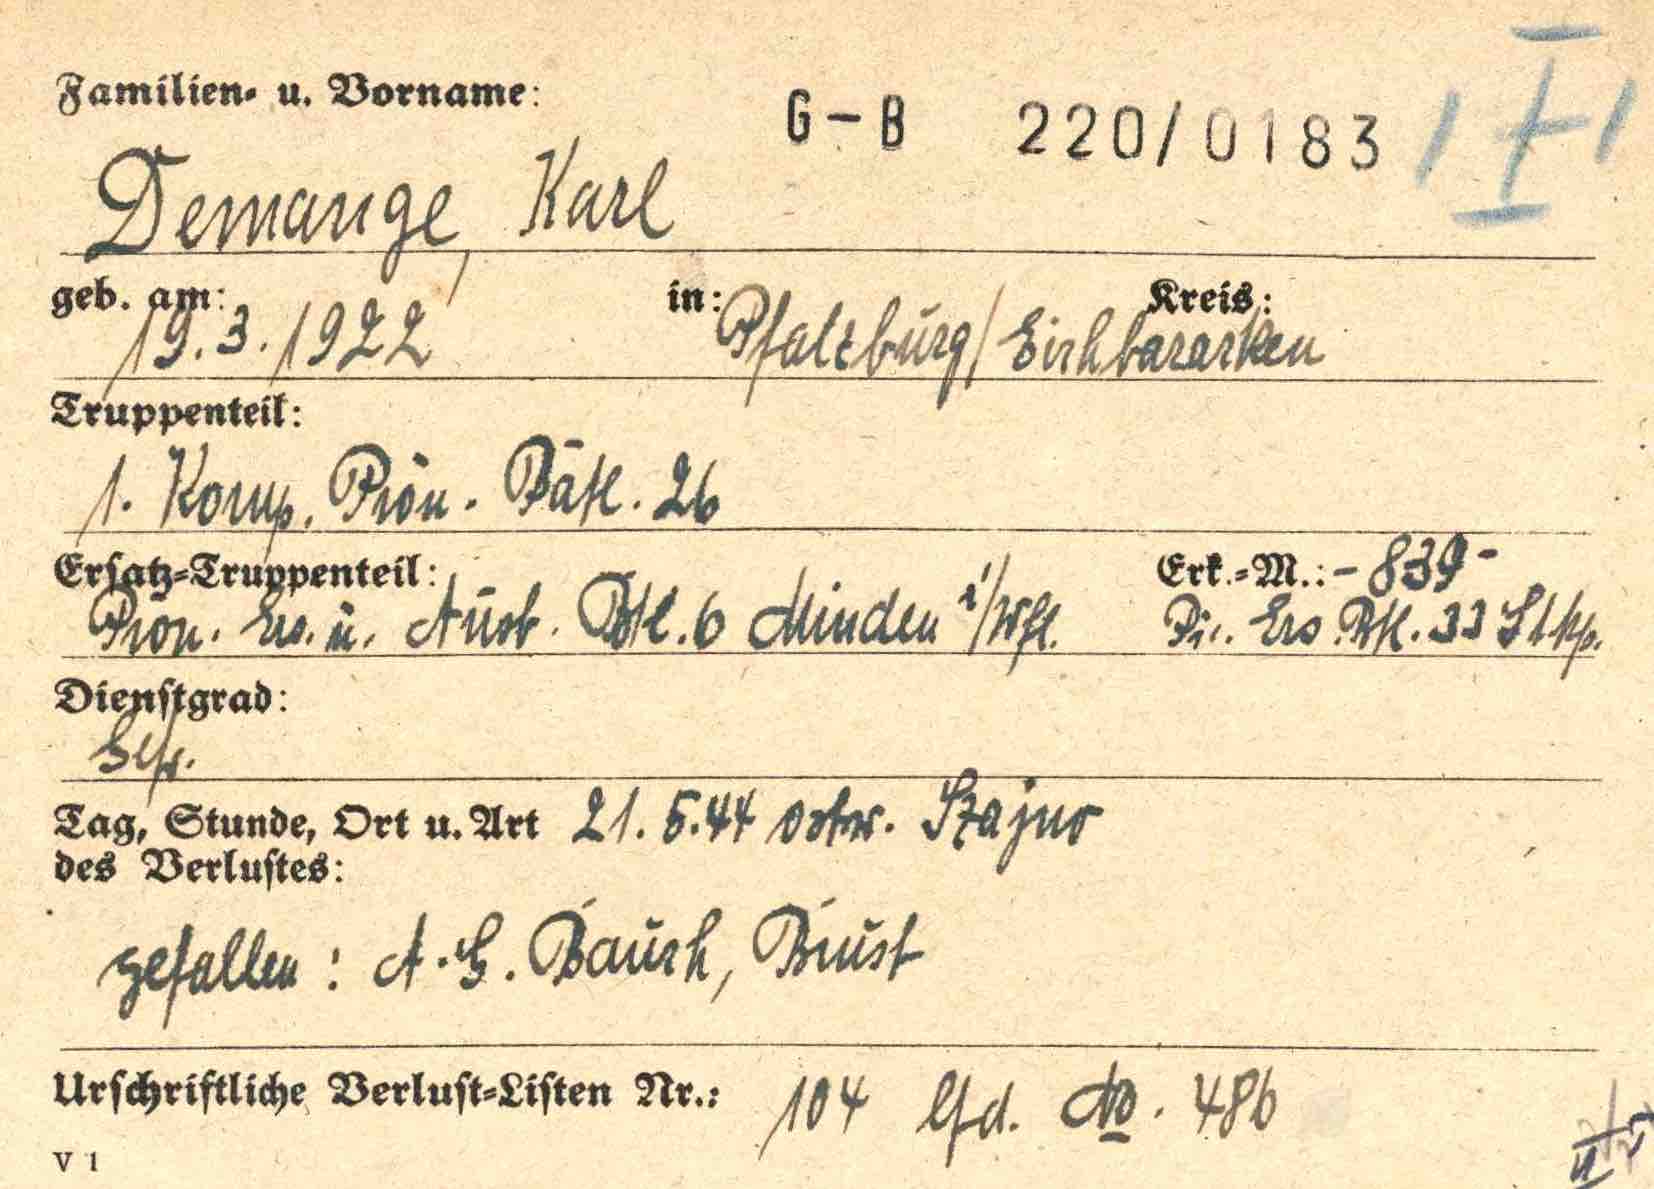 Familien- u. Vorname:
G-B 220/0183 I
Demange, Karl
geb. am: in: Kreis:
19.3.1922 Pfalzburg/Eichbaracken
Truppenteil:
1. Komp. Pion. Batl. 26
Ersatz-Truppenteil: Erk.-M.: -839-
Pion. Ers. u. Ausb. Btl. 6 Minden i/Wfl. Pi. Ers. Btl. 33 St.Kp.
Dienstgrad:
Gefr.
Tag, Stunde, Ort u. Art 21.5.44 ostw. Szajno
des Verlustes:
gefallen: A.G. Bauch, Brust
Urschriftliche Verlust-Listen Nr.: 104 lfd. No. 486
V 1